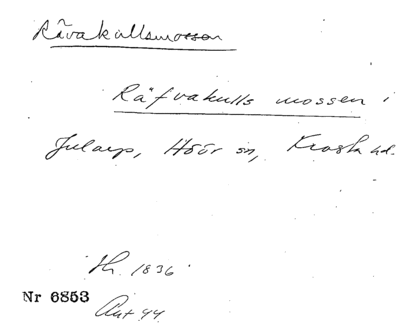 Rävakullsmossen
Räfvakulls mossen i
Jularp, Höör sn, Frosta hd.
Hr. 1836
Nr 6853
Akt 44